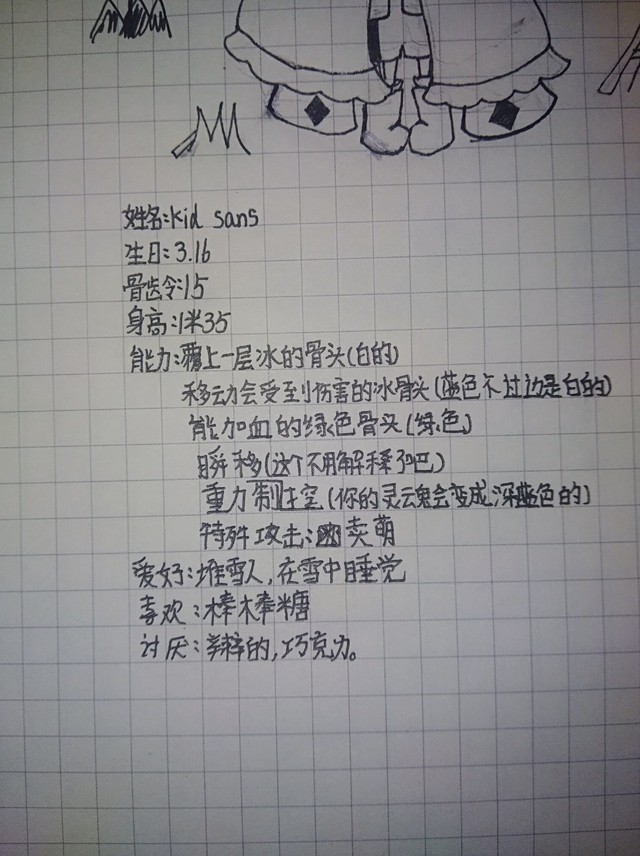 姓名:kid sans
生日:3.16
骨齿令:15
身高:1米35
能力:覆上一层冰的骨头(白的)
移动会受到伤害的冰骨头(蓝色不过边是白的)
能加血的绿色骨头(绿色)
瞬移(这个不用解释了吧)
重力制空(你的灵魂会变成深蓝色的)
特殊攻击:卖萌
爱好:堆雪人,在雪中睡觉
喜欢:棒棒糖
讨厌:辣的,巧克力。